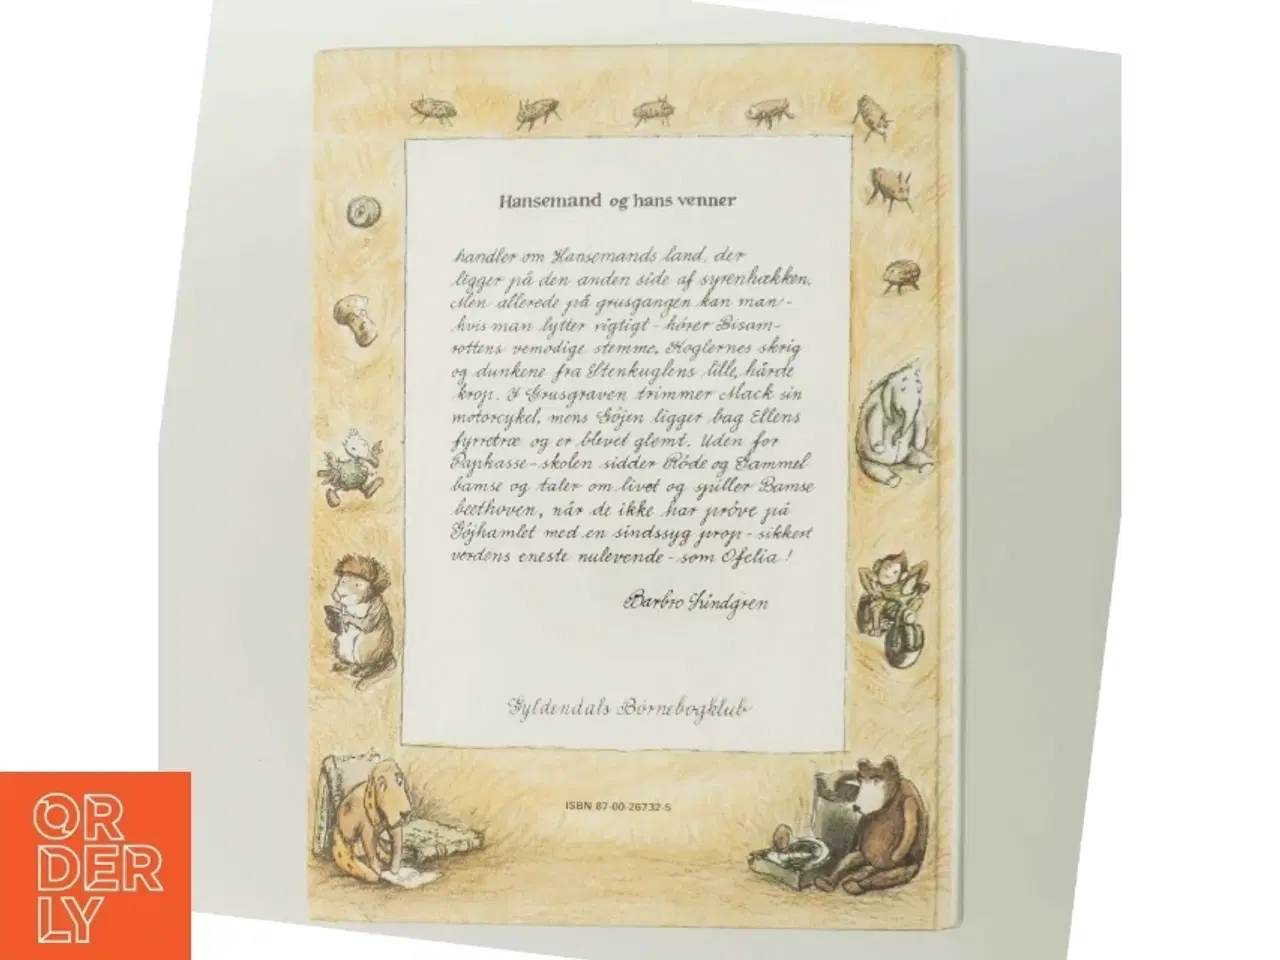 Hansemand og hans venner
handler om Hansemands land, der
ligger på den anden side af syrenhækken.
Men allerede på grusgangen kan man -
hvis man lytter rigtigt - hører Bisam-
rottens vemodige stemme, Koglernes skrig
og dunkene fra Stenkuglens lille, hårde
krop. I Grusgraven trimmer Mack sin
motorcykel, mens Göjen ligger bag Ellens
fyrretræ og er blevet glemt. Uden for
Papkasse-skolen sidder Röde og Gammel
bamse og taler om livet og spiller Bamse
beethoven, når de ikke har pröve på
Göjhamlet med en sindssyg prop - sikkert
verdens eneste nulevende - som Ofelia!
Barbro Lindgren
Gyldendals Börnebogklub
ISBN 87-00-26732-5
OR
DER
LY